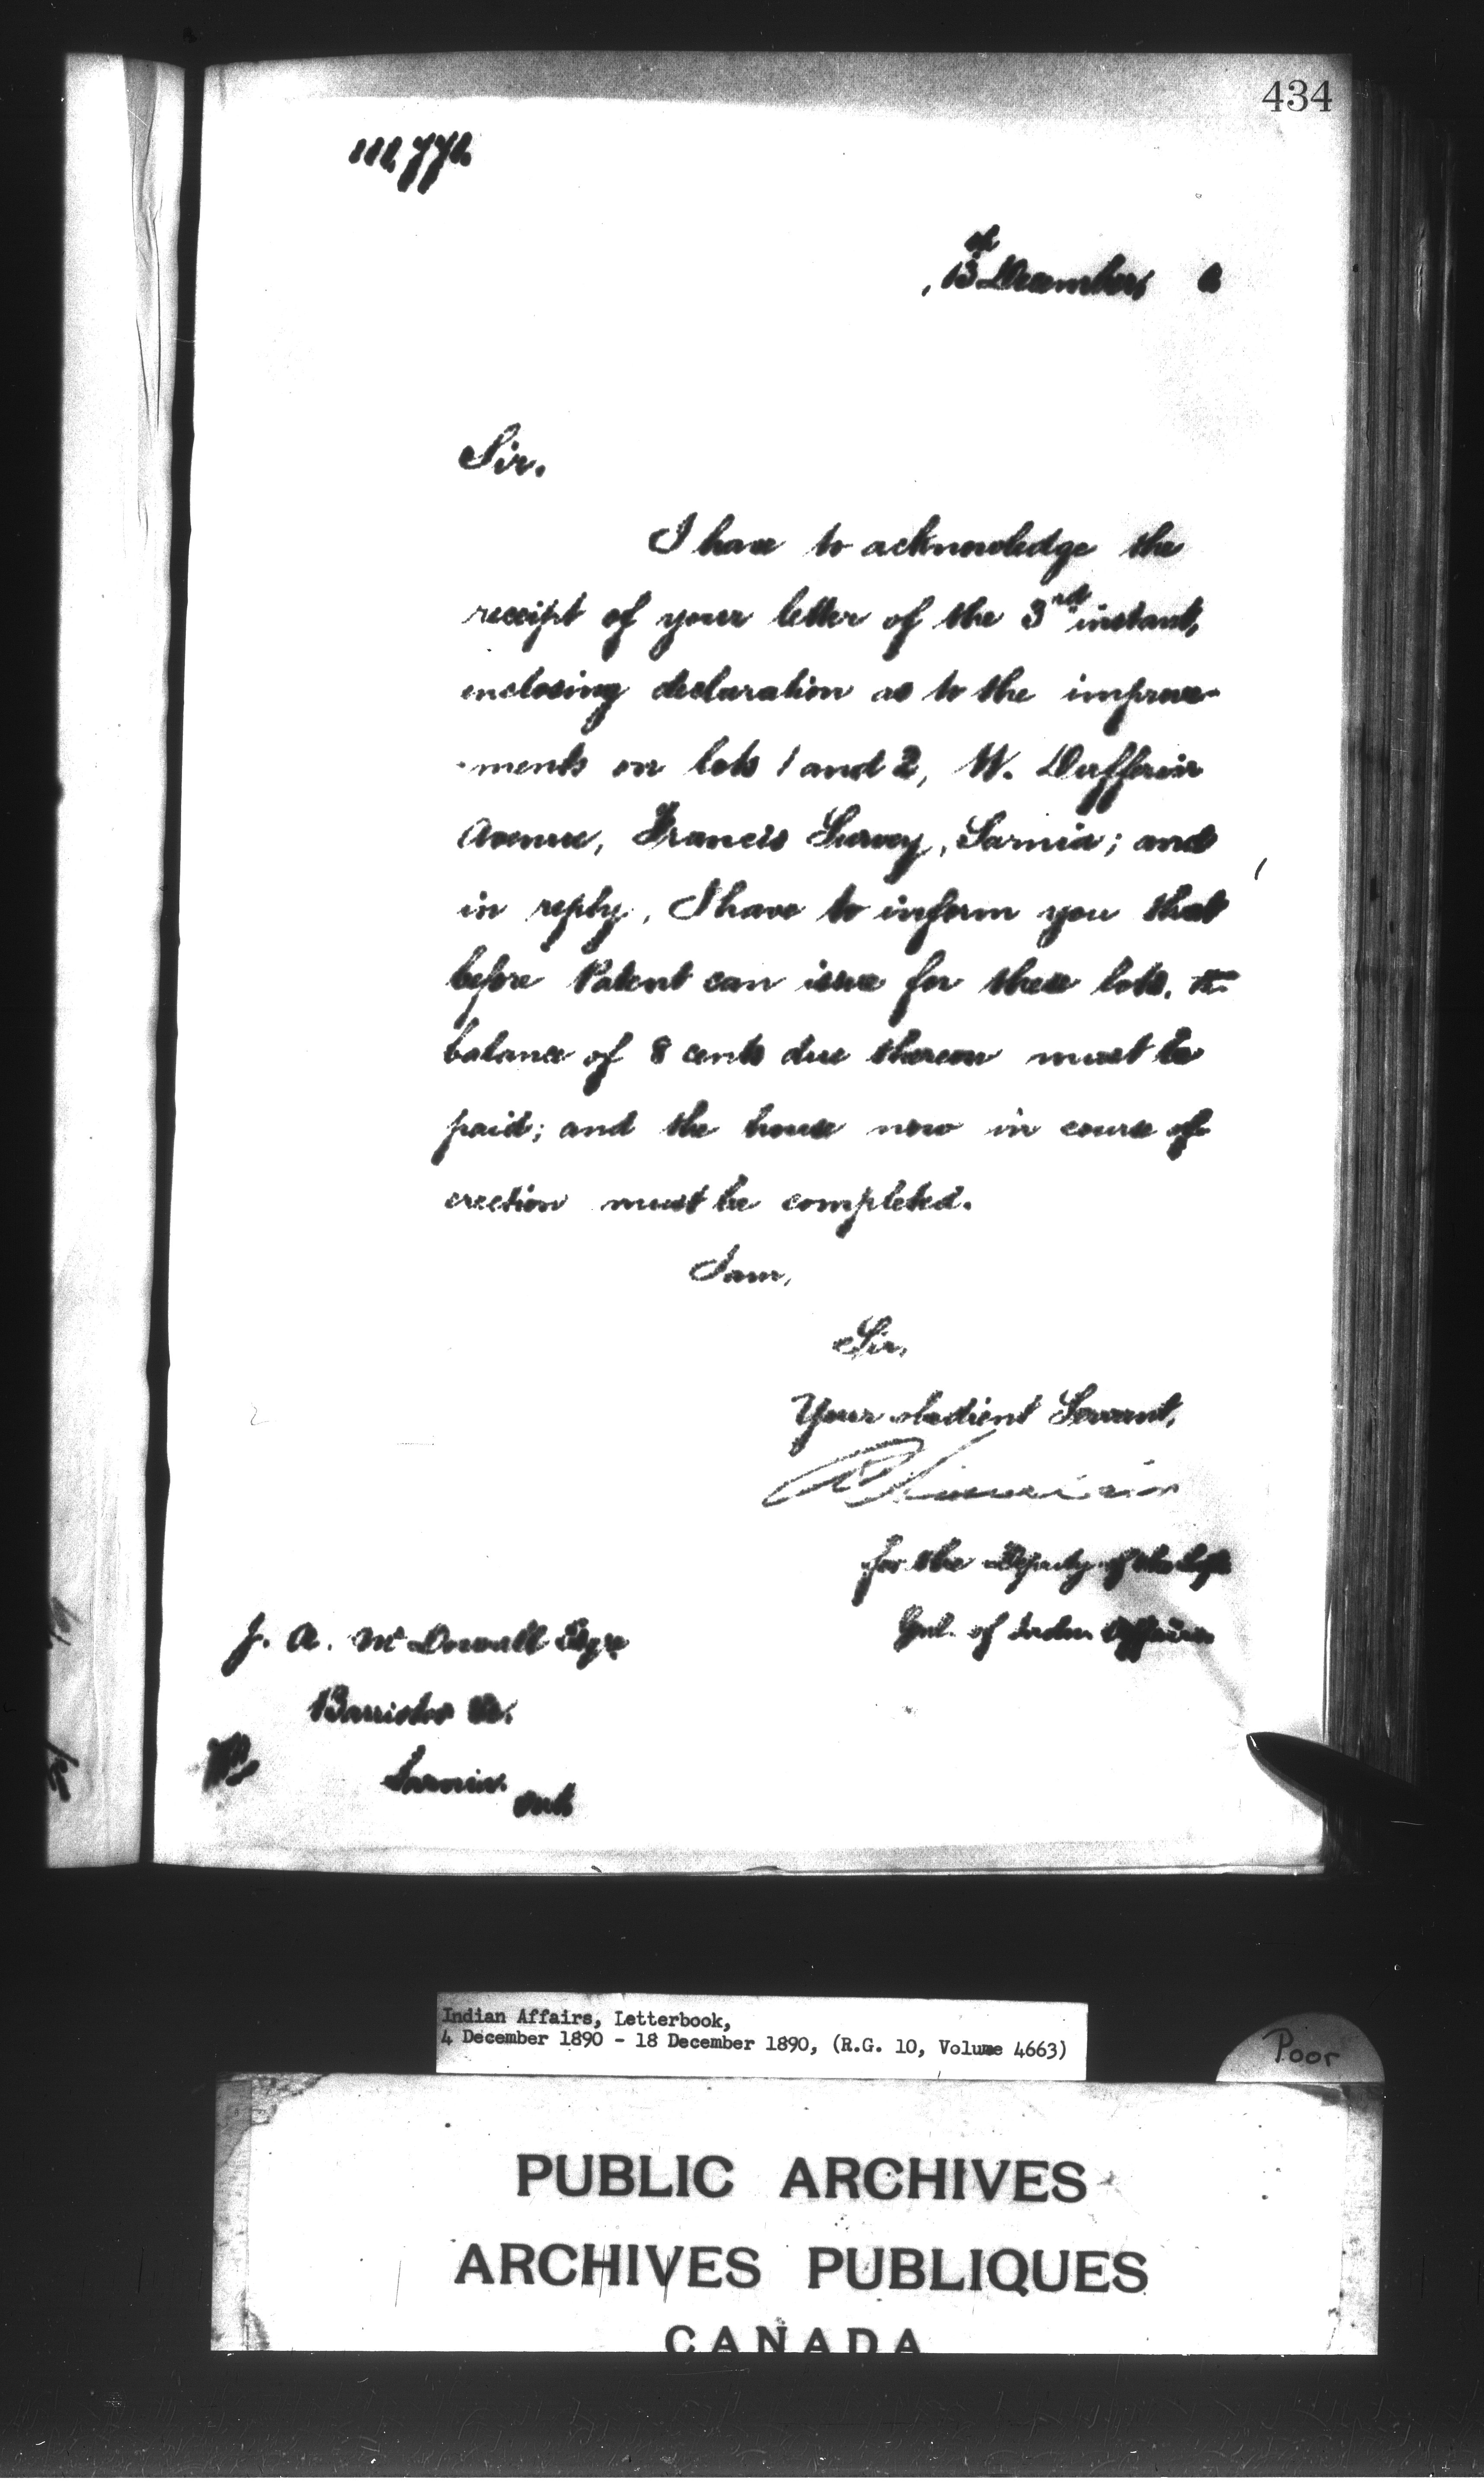 434
13 December
Sir.
I have to acknowledge the
receipt of your letter of the 3rd instant,
enclosing declaration as to the improve-
-ments on lots 1 and 2, W. Dufferin
Avenue, Francis Survey, Sarnia; and
in reply, I have to inform you that
before Patent can issue for these lots, the
balance of 8 cents due thereon must be
paid; and the house now in course of
erection must be completed.
I am,
Sir,
Your obedient Servant,
for the Deputy of the Supt
Gnl. of Indn Affairs
J. A. Mc Dowall Esqre
Barrister &c.
Sarnia.
Ont
Indian Affairs, Letterbook,
4 December 1890 - 18 December 1890, (R.G. 10, Volume 4663)
Poor
PUBLIC ARCHIVES
ARCHIVES PUBLIQUES
CANADA